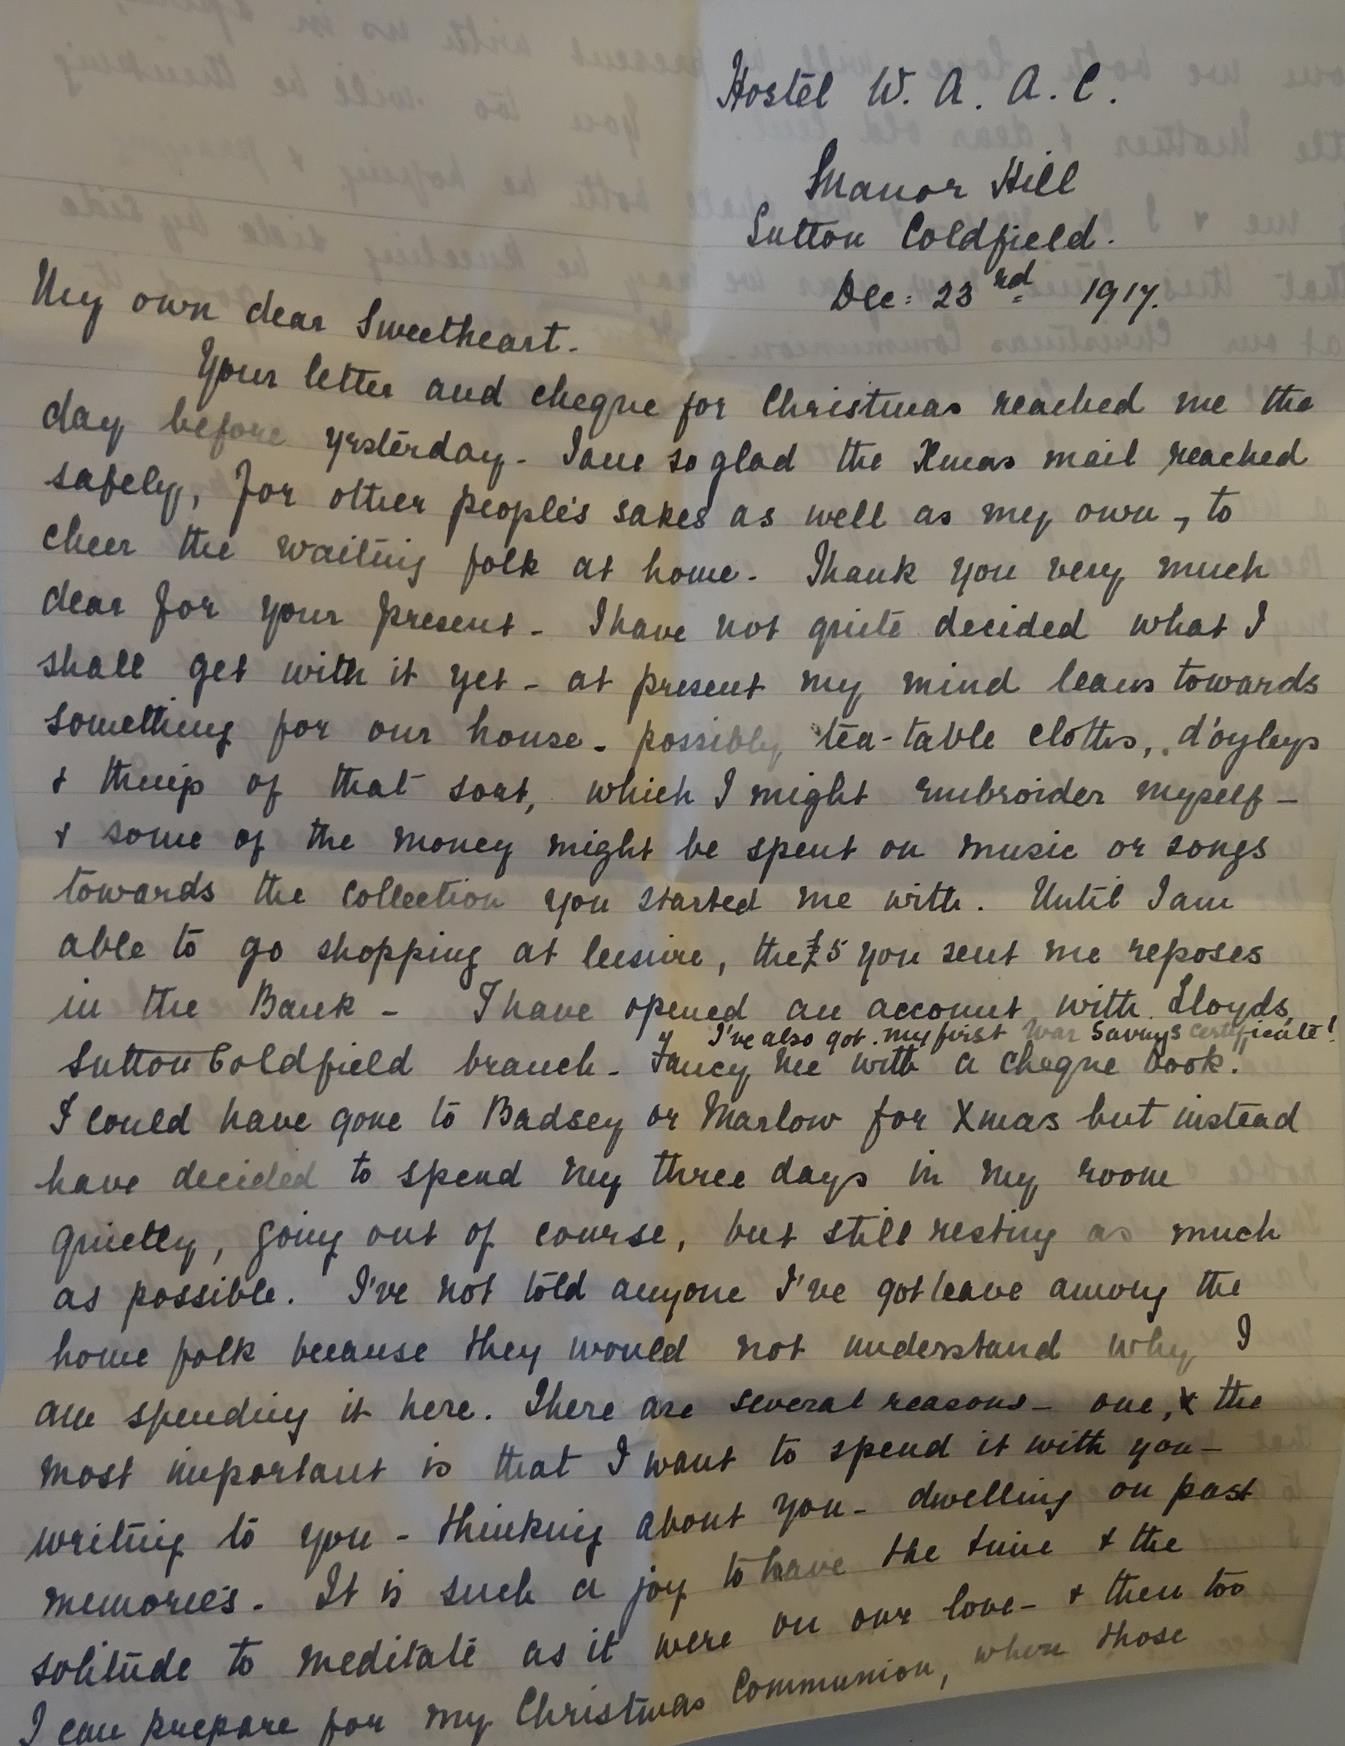 Hostel W. A. A. C.
Manor Hill
Sutton Coldfield.
Dec: 23rd 1917.
My own dear Sweetheart.
Your letter and cheque for Christmas reached me the
day before yesterday - I am so glad the Xmas mail reached
safely, for other people's sakes as well as my own, to
cheer the waiting folk at home - Thank you very much
dear for your present - I have not quite decided what I
shall get with it yet - at present my mind leans towards
something for our house - possibly tea-table cloths, d'oyleys
& things of that sort, which I might embroider myself -
& some of the money might be spent on music or songs
towards the collection you started me with. Until I am
able to go shopping at leisure, the £5 you sent me reposes
in the Bank - I have opened an account with Lloyds,
I've also got my first War Savings Certificate!
Sutton Coldfield branch - Fancy me with a cheque book!
I could have gone to Badsey or Marlow for Xmas but instead
have decided to spend my three days in my room
quietly, going out of course, but still resting as much
as possible. I've not told anyone I've got leave among the
home folk because they would not understand why I
am spending it here. There are several reasons - one, & the
most important is that I want to spend it with you -
writing to you - thinking about you - dwelling on past
memories. It is such a joy to have the time & the
solitude to meditate as it were on our love - & then too
I can prepare for my Christmas Communion, when those